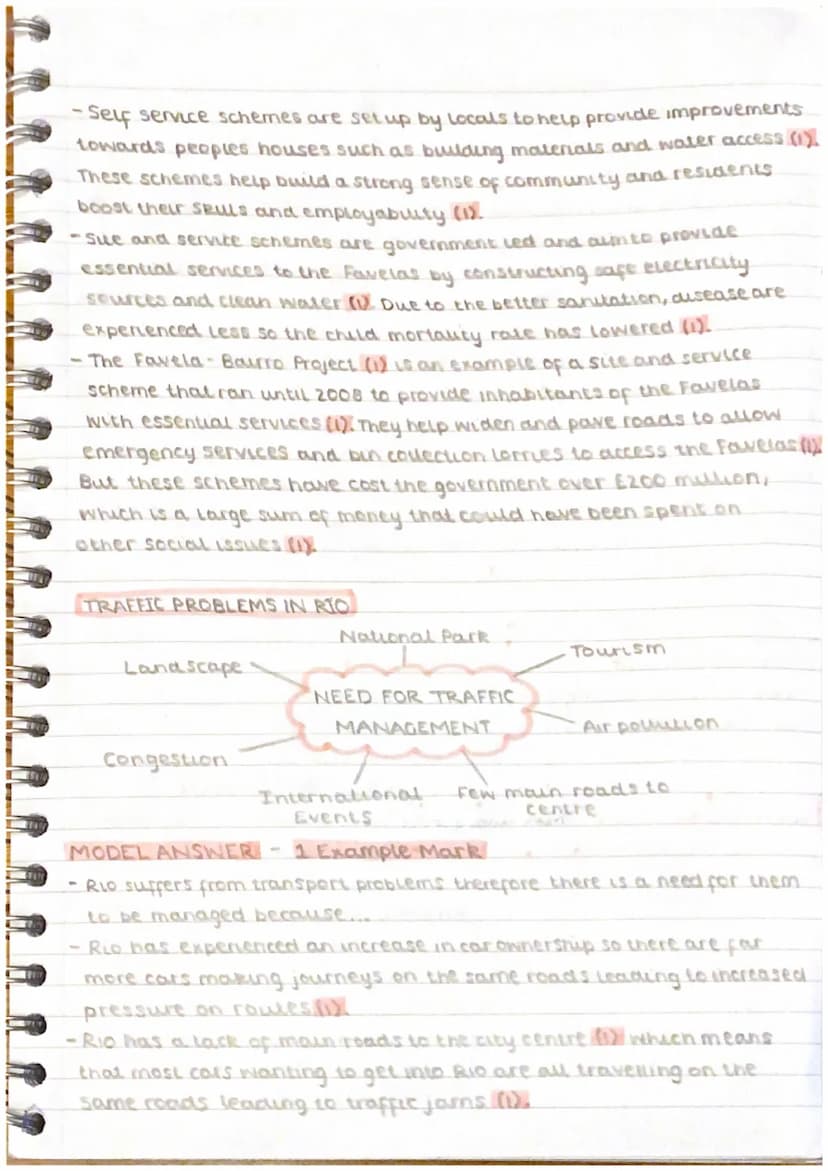 - Self service schemes are set up by locals to help provide improvements
towards peoples houses such as building materials and water access (1).
These schemes help build a strong sense of community and residents
boost their skills and employability (1).
- Site and service schemes are government led and aim to provide
essential services to the Favelas by constructing safe electricity
sources and clean water (1). Due to the better sanitation, disease are
experienced less so the child mortality rate has lowered (1).
- The Favela-Bairro Project (1) is an example of a site and service
scheme that ran until 2008 to provide inhabitants of the Favelas
with essential services (1). They help widen and pave roads to allow
emergency services and bin collection lorries to access the Favelas (1).
But these schemes have cost the government over £200 million,
which is a large sum of money that could have been spent on
other social issues (1).
TRAFFIC PROBLEMS IN RIO
National Park
Landscape
Tourism
NEED FOR TRAFFIC
MANAGEMENT
Air pollution
Congestion
International
Events
Few main roads to
centre
MODEL ANSWER - 1 Example Mark
- Rio suffers from transport problems therefore there is a need for them
to be managed because...
- Rio has experienced an increase in car ownership so there are far
more cars making journeys on the same roads leading to increased
pressure on routes (1).
- Rio has a lack of main roads to the city centre (1) which means
that most cars wanting to get into Rio are all travelling on the
same roads leading to traffic jams (1).